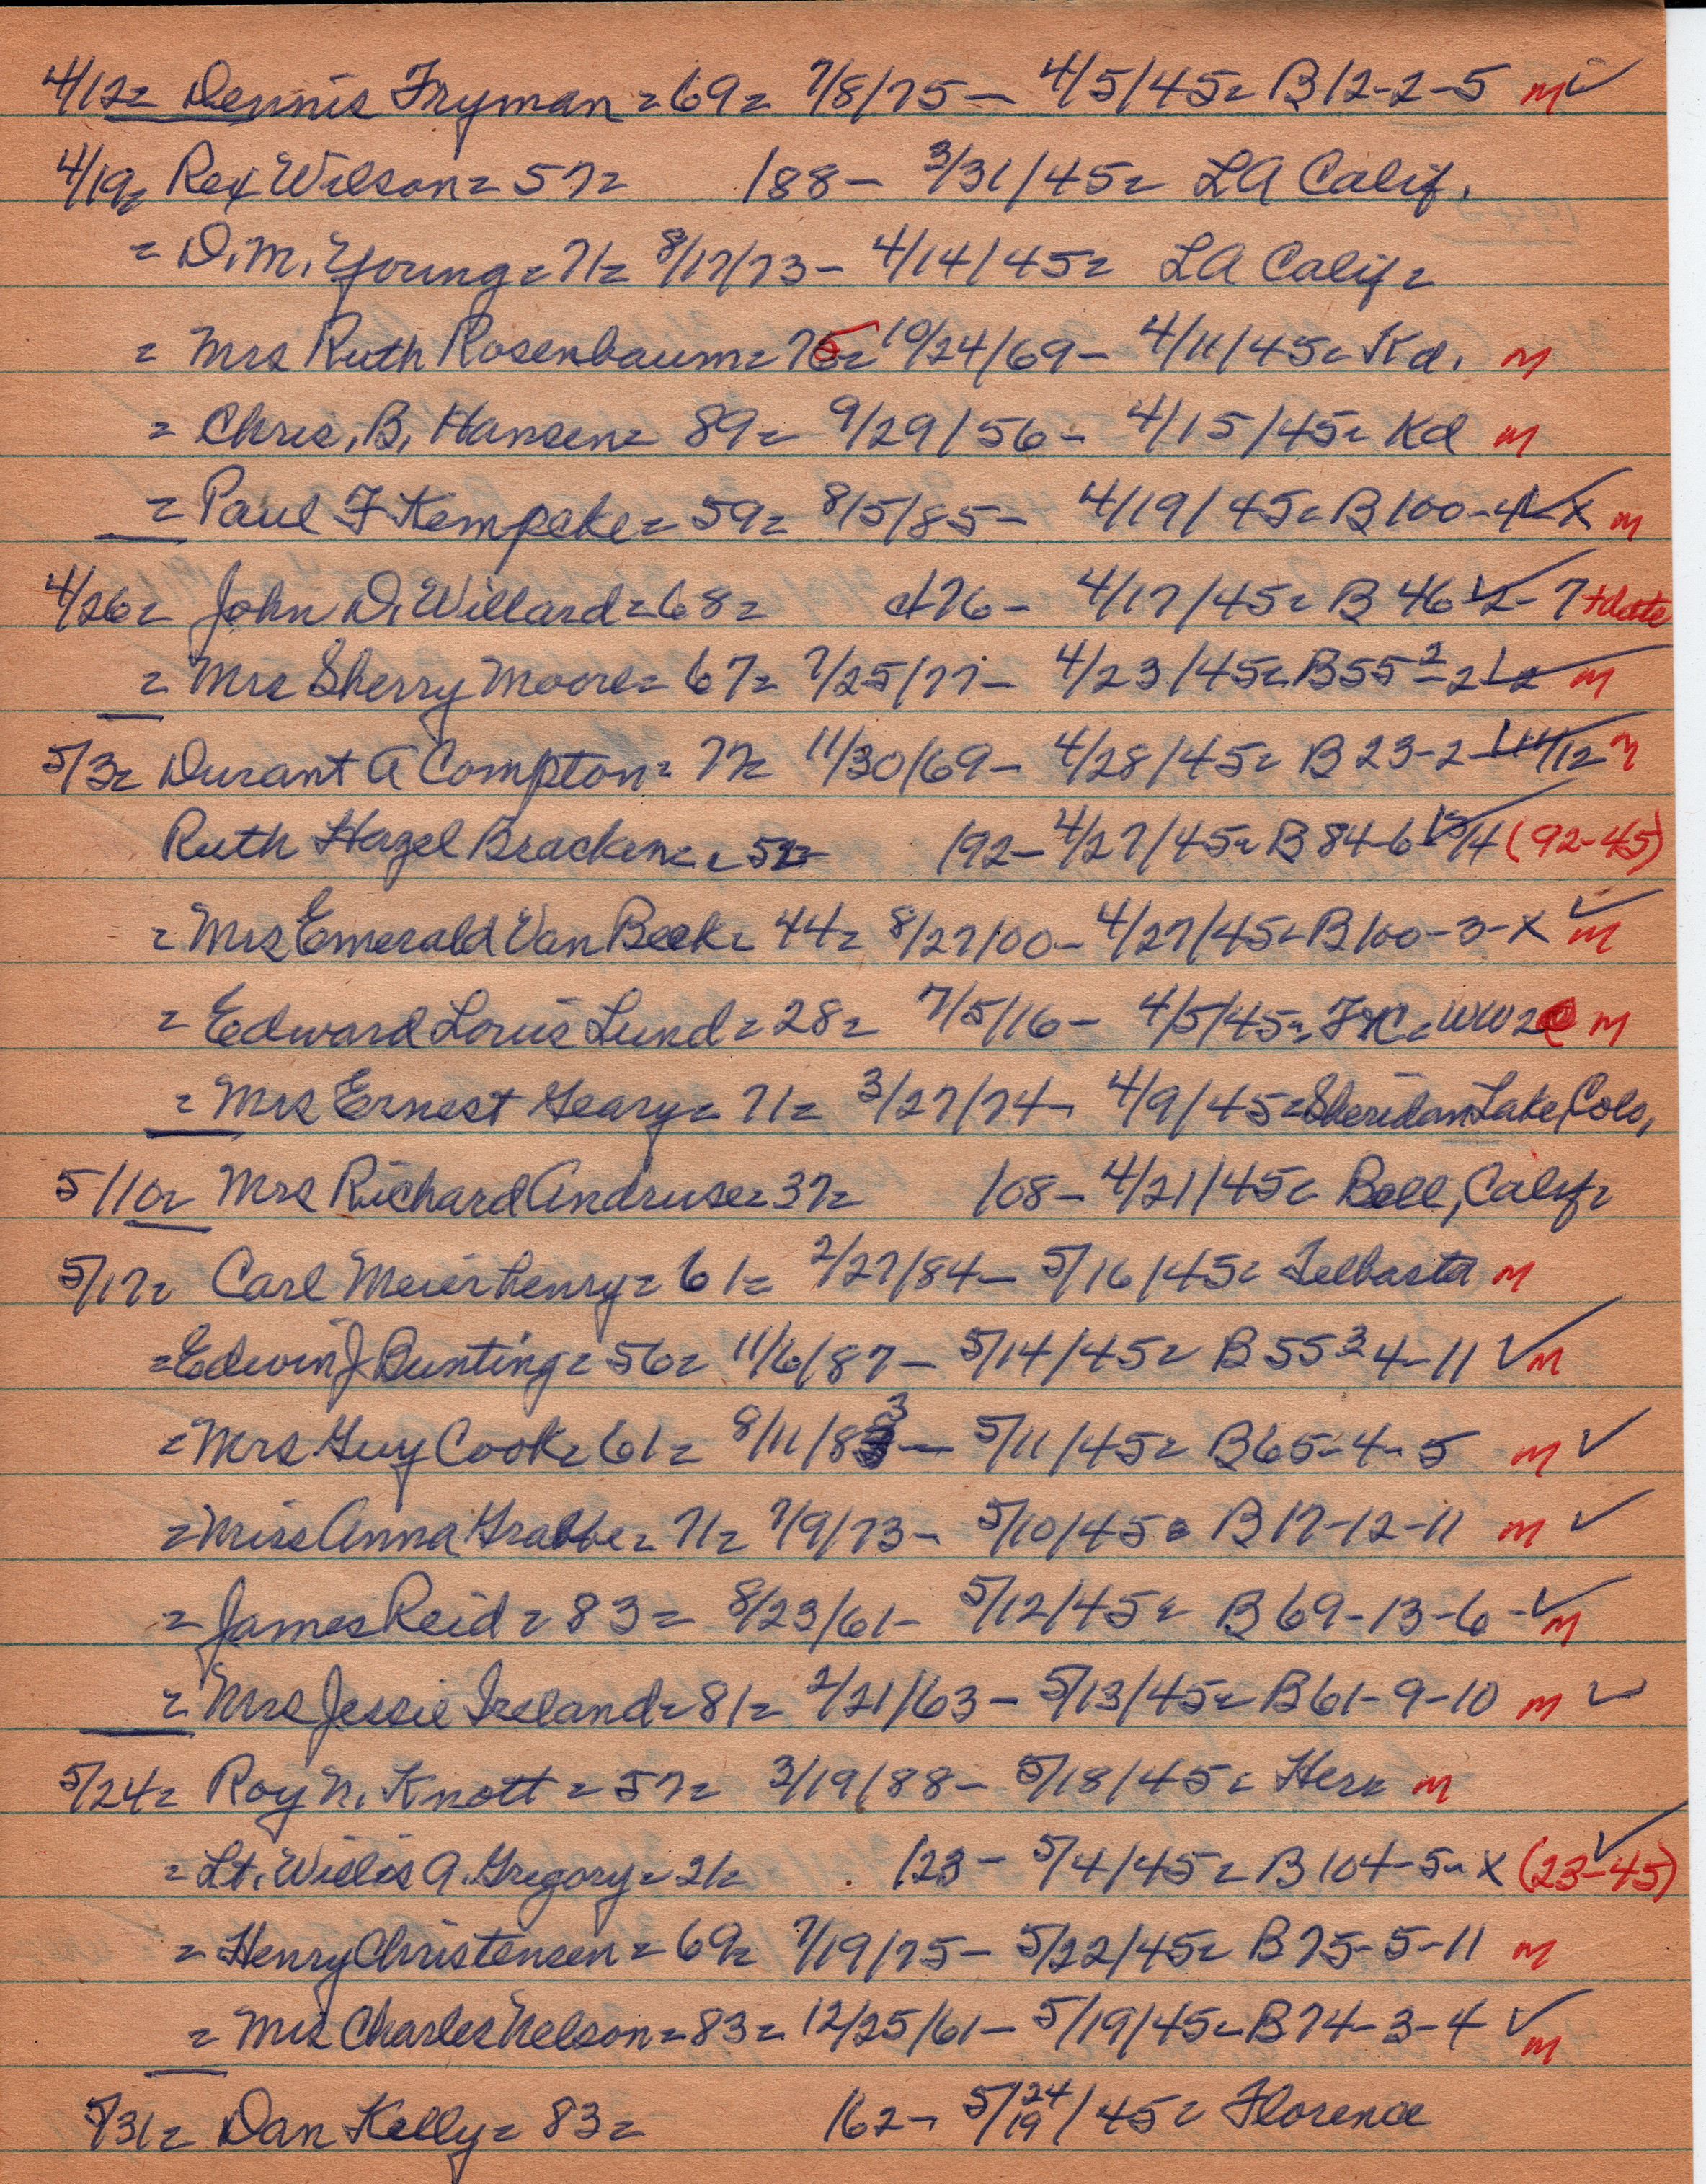 4/12= Dennis Fryman = 69= 7/8/75 - 4/5/45= B 12-2-5 m ✓
4/19= Rex Wilson = 57= /88 - 3/31/45= LA Calif.
= D.M. Young = 71= 8/17/73 - 4/14/45= LA Calif=
= Mrs Ruth Rosenbaum = 75= 10/24/69 - 4/11/45= Kd. m
= Chris. B. Hansen= 89= 9/29/56 - 4/15/45= Kd m
= Paul F Kempcke= 59= 8/5/85 - 4/19/45= B 100-4 X m
4/26= John D. Willard = 68= /76 - 4/17/45= B 46 -7 +date
= Mrs Sherry Moore= 67= 7/25/77 - 4/23/45= B55 2 m
5/3= Durant A Compton= 77= 11/30/69 - 4/28/45= B 23-2 m
Ruth Hazel Bracken= 52 /92 - 4/27/45= B 84-6 (92-45)
= Mrs Emerald Van Beek= 44= 8/27/00 - 4/27/45= B 100-3-X ✓ m
= Edward Loris Lund = 28= 7/5/16 - 4/5/45= = WW2 m
= Mrs Ernest Geary= 71= 3/27/74 - 4/9/45= Sheridan Lake, Colo,
5/10= Mrs Richard Andruse= 37= /08 - 4/21/45= Bell, Calif=
5/17= Carl Meierhenry= 61= 2/27/84 - 5/16/45= Telbasta m
= Edwin J Bunting= 56= 11/6/87 - 5/14/45= B 55 3 4-11 ✓ m
= Mrs Guy Cook= 61= 8/11/83 - 5/11/45= B65-4-5 m ✓
= Miss Anna Grabbe= 71= 7/9/73 - 5/10/45= B 17-12-11 m ✓
= James Reid = 83= 8/23/61 - 5/12/45= B 69-13-6 - ✓ m
= Mrs Jessie Ireland= 81= 2/21/63 - 5/13/45= B61-9-10 m ✓
5/24= Roy N. Knott = 57= 3/19/88 - 5/18/45= m
= Lt. Willis A. Gregory= 21= /23 - 5/4/45= B 104-5-X ✓ (23-45)
= Henry Christensen = 69= 7/19/75 - 5/22/45= B 75-5-11 m
= Mrs Charles Nelson= 83= 12/25/61 - 5/19/45= B 74-3-4 ✓ m
5/31= Dan Kelly= 83= /62 - 5/24 19/45= Florence